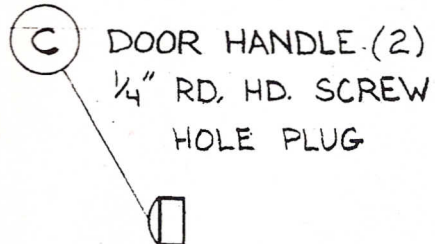 C DOOR HANDLE (2)
1/4" RD. HD. SCREW
HOLE PLUG